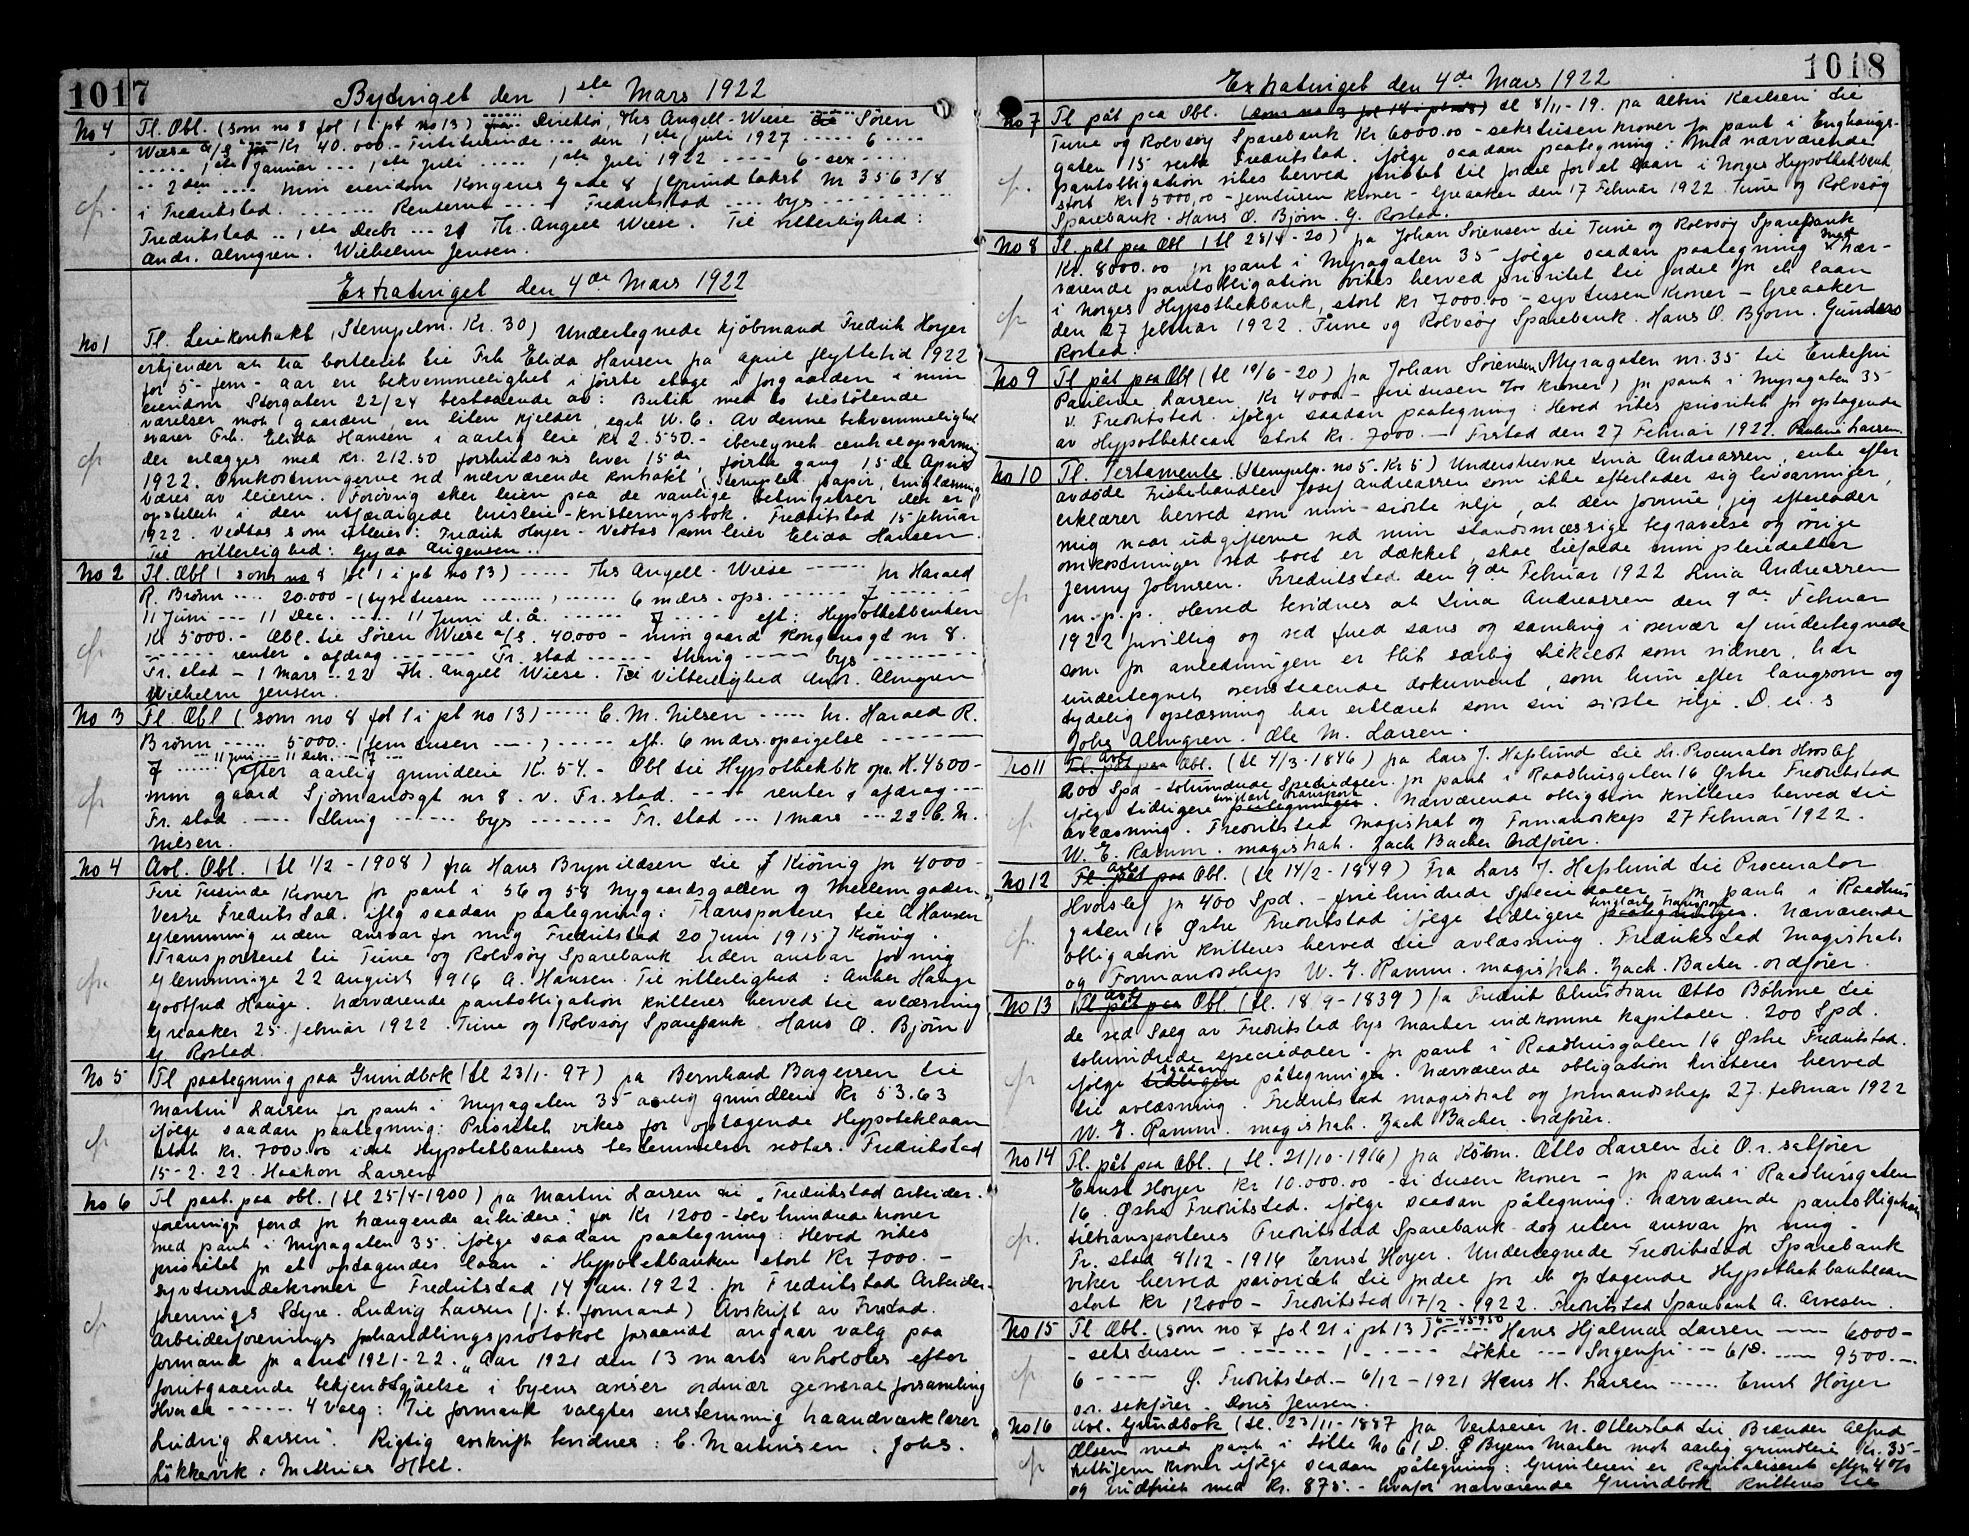 1017
Bytinget den 1ste Mars 1922
No 4 Tl. Obl. (som no 8 fol 1 i pt no 13) Direktør, Ths Angell-Wiese Søren
Wiese a/s Kr 40.000.- Førtitusinde ... den 1ste juli 1927 ..... 6 ....
..... 1ste Januar .... 1ste Juli ..... 1ste Juli 1922 .... 6-sex ....
.. 2den .... min eiendom Kongens Gade 8 (Grund takst Nr 3563/8
i Fredrikstad. ....... Renterne .... Fredrikstad .... bys ............
Fredrikstad .. 1ste Decbr ... 21 Th. Angell Wiese. Til vitterlighed:
Andr. Almgren. Wilhelm Jensen.
Extratinget den 4de Mars 1922
No 1 Tl. Leiekontrakt (Stempelm. Kr. 30) Undertegnede kjøbmand Fredrik Høyer
erkjender at ha bortleiet til Frk Elida Hansen fra april flyttetid 1922
for 5- fem- aar en bekvemmelighet i første etage i forgaarden i min
eiendom Storgaten 22/24 bestaaende av: Butik med to tilstøtende
værelser mot gaarden, en liten kjelder, eget W. C. Av denne bekvemmelighet
svarer Frk. Elida Hansen i aarlig leie kr 2.550.- iberegnet centralopvarmning
der erlægges med kr. 212.50 forskudsvis hver 15de, første gang 15de April
1922. Omkostningerne ved nærværende kontrakt (Stemplet papir, tinglæsning)
bæres av leieren. Forøvrig sker leien paa de vanlige betingelser der er
opstillet i den utfærdigede husleie-kvitteringsbok. Fredrikstad 15 februar
1922. Vedtas som utleier: Fredrik Høyer - Vedtas som leier Elida Hansen.
Til vitterlighed: Gyda Jürgensen.
No 2 Tl. Obl (som no 8 fol 1 i pt no 13) ...... Ths Angell-Wiese ...... hr Harald
R. Brønn .... 20.000 - (tyvetusen ........) ...... 6 mdrs. ops. ..... 7 .......
11 Juni --- 11 Dec. ..... 11 Juni d. å. ....... 7 ..... eft: Hypothekbanken
Kr 5000.- Obl. til Søren Wiese a/s. 40.000 - min gaard Kongensgt nr 8.
...... renter & afdrag ....... Fr. stad ...... thing ..... bys .........
Fr. stad - 1 Mars .. 22 Th. Angell Wiese. Til Vitterlighed Andr. Almgren
Wilhelm Jensen.
No 3 Tl. Obl (som no 8 fol 1 i pt no 13) ..... C. M. Nilsen ..... hr. Harald R.
Brønn ..... 5000.- (fem tusen ....) ..... eft. 6 mdrs. opsigelse ........
... 11 Juni ... 11 Decbr. ... (7 ...
7 ..... efter aarlig grundleie K. 54.- Obl til Hypothekbk opr. K. 4500-
min gaard Sjømandsgt nr 8. v. Fr. stad. ..... renter & afdrag ....
Fr. stad ..... thing ...... bys ....... Fr. stad ... 1 mars ... 22 C. M.
Nilsen.
No 4 Avl. Obl. (tl 1/2 - 1908) fra Hans Brynildsen til J Kiönig for 4000-
Fire Tusinde Kroner for pant i 56 og 58 Nygaardsgaten og Mellemgaden
Vestre Fredrikstad. iflg saadan paategning: Transporteres til A Hansen
Glemming uden ansvar for mig Fredrikstad 20 Juni 1915 J Kiönig.
Transporteret til Tune og Rolvsøy Sparebank uden ansvar for mig
Glemminge 22 August 1916 A. Hansen. Til vitterlighed: Anker Hauge
Gotfred Hauge. Nærværende pantobligation kvitteres herved til avlæsning
Greaaker 25. februar 1922. Tune og Rolvsøy Sparebank. Hans O. Bjørn
G. Rostad.
No 5 Tl paategning paa Grundbok (tl 23/1-97) fra Bernhard Børgersen til
Martin Larsen for pant i Myragaten 35 aarlig grundleie Kr 53.63
ifølge saadan paategning: Prioritet vikes for optagende Hypoteklaan
stort kr. 7000.00 idet Hypotekbankens bestemmelser vedtas. Fredrikstad
15-2. 22. Haakon Larsen
No 6 Tl paat. paa obl. (tl 25/4-1900) fra Martin Larsen til „Fredrikstad arbeider-
forenings fond for trængende arbeidere." for Kr 1200 - tolv hundrede kroner
med pant i Myragaten 35. ifølge saadan paategning: Herved vikes
prioritet for et optagendes laan i Hypotekbanken stort Kr 7000. -
syvtusindekroner - Fredrikstad 14 Jan. 1922. for Fredrikstad Arbeider-
forenings Styre. Ludvig Larsen (f. t. formand) Avskrift av Fr.stad.
Arbeiderforenings forhandlingsprotokol forsaavidt angaar valg paa
formand for aaret 1921-22. „Aar 1921 den 13 marts avholdtes efter
forutgaaende bekjendtgjørelse i byens aviser ordinær generalforsamling
Hvor ...... 4 Valg: Til formand valgtes enstemmig haandværklærer
Ludvig Larsen". Rigtig avskrift bevidnes: C. Martinsen. Johs.
Løkkevik. Mathias Holt.
1018
Extratinget den 4de Mars 1922
No 7 Tl påt paa Obl. tl 8/11-19. fra Albin Karlsen til
Tune og Rolvsøy Sparebank Kr 6000.00 - sekstusen kroner for pant i Enghaugs-
gaten 15 Fredrikstad. ifølge saadan paategning: Med nærværende
pantobligation vikes herved prioritet til fordel for et laan i Norges Hypothekbank
stort kr 5000,00 - femtusen kroner - Greaaker den 17 Februar 1922. Tune og Rolvsøy
Sparebank. Hans O. Bjørn. G. Rostad.
No 8 Tl påt paa Obl (tl 28/4-20) fra Johan Sørensen til Tune og Rolvsøy Sparebank
Kr. 8000.00 for pant i Myragaten 35 ifølge saadan paategning med nær-
værende pantobligation vikes herved prioritet til fordel for et laan
i Norges Hypothekbank, stort kr 7000.00 - syvtusen kroner - Greaaker
den 27 februar 1922. Tune og Rolvsøy Sparebank. Hans O. Bjørn. Gunders
Rostad.
No 9 Tl påt paa Obl (tl 19/6-20) fra Johan Sørensen Myragaten nr. 35 til Enkefru
Pauline Larsen Kr 4000 - firetusen kroner) for pant i Myragaten 35
v. Fredrikstad. ifølge saadan paategning: Herved vikes prioritet for optagende
av Hypotheklaan stort kr. 7000. - Fr.stad den 27 Februar 1922. Pauline Larsen.
No 10 Tl. Testamente (Stempelp. no 5. Kr 5) Underskrevne Lina Andreassen, enke efter
avdøde Fiskehandler Josef Andreassen som ikke efterlader sig livsarvinger,
erklærer herved som min sidste vilje, at den formue, jeg efterlader
mig naar udgifterne ved min standsmæssige begravelse og øvrige
omkostninger ved boet er dækket, skal tilfalde min pleiedatter
Jenny Johnsen. Fredrikstad den 9de Februar 1922 Lina Andreassen
m. p. p. Herved bevidnes at Lina Andreassen den 9de Februar
1922 frivillig og ved fuld sans og samling i overvær af undertegnede
som for anledningen er blit særlig tilkaldt som vidner, har
undertegnet ovenstaaende dokument, som hun efter langsom og
tydelig oplæsning har erklæret som sin sidste vilje. D. u. s
Johs Almgren. Ole M. Larsen.
No 11 Avl Obl. (tl 4/3-1846) fra Lars J. Haslund til Hr. Procurator Hvoslef
200 Spd - tohundrede Speciedaler for pant i Raadhusgaten 16 Østre Fredrikstad
ifølge tidligere tinglæst transport. Nærværende obligation kvitteres herved til
avlæsning. Fredrikstad Magistrat og Formandskap 27 Februar 1922.
W. E. Ramm. magistrat. Zach Backer Ordfører.
No 12 Avl Obl. (tl 14/2-1849) Fra Lars J. Haslund til Procurator
Hvoslef for 400 Spd. - firehundrede Speciedaler - for pant i Raadhus
gaten 16 Østre Fredrikstad ifølge tidligere tinglæst transport. Nærværende
obligation kvitteres herved til avlæsning. Fredrikstad Magistrat
og Formandskap W. E. Ramm. magistrat. Zach. Backer. ordfører.
No 13 Avl Obl (tl. 18/9-1839) fra Fredrik Christian Otto Böhme til
de ved Salg av Fredrikstad bys Marker indkomne Kapitaler. 200 Spd.
tohundrede speciedaler - for pant i Raadhusgaten 16 Østre Fredrikstad.
ifølge saadan påtegning. Nærværende obligation kvitteres herved
til avlæsning. Fredrikstad magistrat og formandskap 27. februar 1922
W. E. Ramm. magistrat. Zach Backer. ordfører.
No 14 Tl. påt paa Obl. (tl. 21/10-1916) fra Købm. Otto Larsen til O.r. sakfører
Ernst Høyer Kr 10.000.00 - ti tusen kroner - for pant i Raadhusgaten
16. Østre Fredrikstad. ifølge saadan påtegning: Nærværende pantobligation
tiltransporteres Fredrikstad Sparebank dog uten ansvar for mig -
Fr. stad 8/12-1916 Ernst Høyer. Undertegnede Fredrikstad Sparebank
viker herved prioritet til fordel for et optagende Hypothekbanklaan
stort kr 12000 - Fredrikstad 17/2-1922. Fredrikstad Sparebank A. Arvesen.
No 15 Tl Obl. (som no 7 fol 21 i pt 13) Hans Hjalmar Larsen ..... 6000-
- seks tusen - ....... 1 ...... Løkke ... Sorgenfri ... 61D. .... 9500. -
6 ..... Ø. Fredrikstad.- 6/12-1921 Hans H. Larsen ..... Ernst Høyer
o.r. sakfører. Doris Jensen.
No 16 Avl. Grundbok (tl. 23/11-1887 fra Verkseier N. Otterstad til Brænder Alfred
Olsen med pant i Løkke No 61 D. Ø Byens Marker mot aarlig grundleie Kr. 35-
trettifem kroner ifølge saadan påtegning: Grundleien er Kapitaliseret efter 4%
og indfriet med kr. 875.- hvorfor nærværende Grundbok kvitteres til